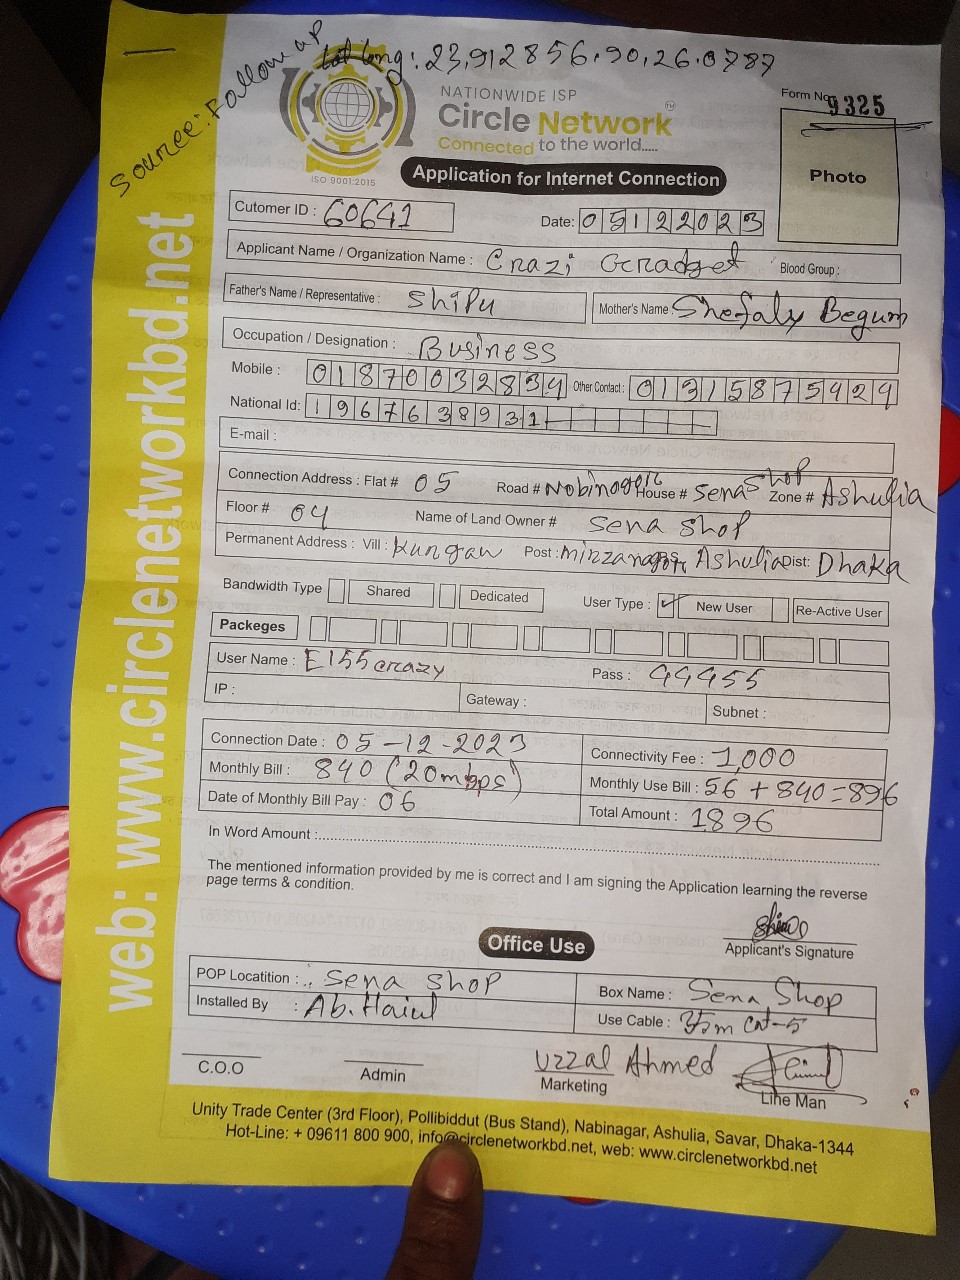 Source: Follow up
Lat Long: 23.912856.90.26.0787
NATIONWIDE ISP
Circle Network
TM
Connected to the world.....
ISO 9001:2015
Form No. 9325
Photo
Application for Internet Connection
Cutomer ID : 60641
Date: 05122023
Applicant Name / Organization Name : Crazi Gradget Blood Group :
Father's Name / Representative : Shipu Mother's Name Shefaly Begum
Occupation / Designation : Business
Mobile : 01870032834 Other Contact : 01315875424
National Id: 1967638931
E-mail :
Connection Address : Flat # 05 Road # House # Sena Shop Zone # Ashulia
Floor # 04 Name of Land Owner # Sena Shop
Permanent Address : Vill : Kungaw Post : Ashulia Dist: Dhaka
Bandwidth Type Shared Dedicated User Type : ✓ New User Re-Active User
Packeges
User Name : E155crazy Pass : 44455
IP : Gateway : Subnet :
Connection Date : 05-12-2023 Connectivity Fee : 1,000
Monthly Bill : 840 (20mbps) Monthly Use Bill : 56 + 840=896
Date of Monthly Bill Pay : 06 Total Amount : 1896
In Word Amount :
The mentioned information provided by me is correct and I am signing the Application learning the reverse
page terms & condition.
Applicant's Signature
Office Use
POP Locatition : Sena Shop Box Name : Sena Shop
Installed By : Ab. Haiul Use Cable : 35m Cat-5
Uzzal Ahmed
C.O.O Admin Marketing Line Man
Unity Trade Center (3rd Floor), Pollibiddut (Bus Stand), Nabinagar, Ashulia, Savar, Dhaka-1344
Hot-Line: + 09611 800 900, info@circlenetworkbd.net, web: www.circlenetworkbd.net
web: www.circlenetworkbd.net